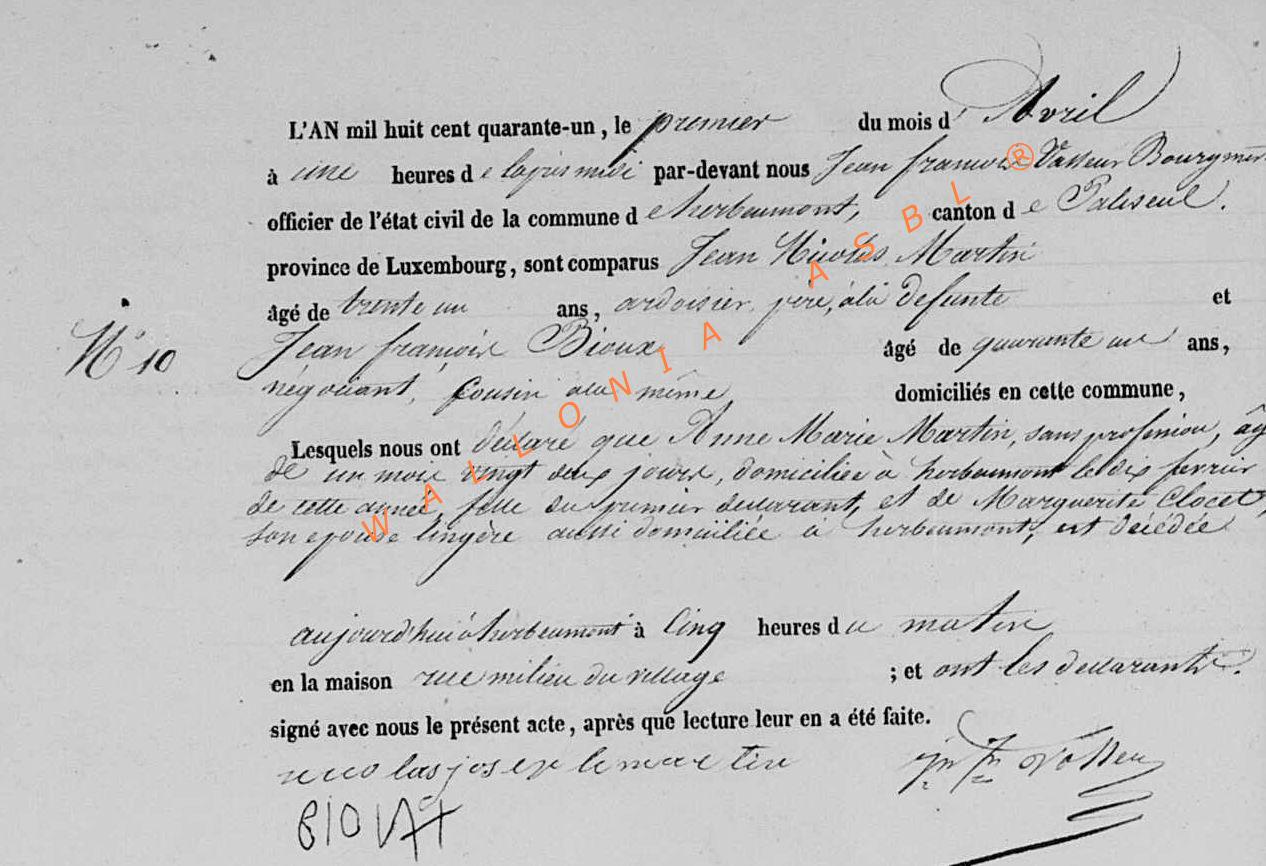 L'AN mil huit cent quarante-un, le premier du mois d'Avril
à une heures de laprès midi par-devant nous Jean françois Vasseur Bourgmes
officier de l'état civil de la commune de herbeumont, canton de Paliseul.
province de Luxembourg, sont comparus Jean Nicolas Martin
âgé de trente un ans, ardoisier, père, àla defunte et
N° 10 Jean françois Bioux âgé de quarante un ans,
négociant, Cousin àla même domiciliés en cette commune,
Lesquels nous ont déclaré que Anne Marie Martin, sans profession, âg
de un mois vingt deux jours, domiciliée à herbeumont le dix fevrier
de cette année, fille du premier declarant, et de Marguerite Clocet,
son epouse lingère aussi domiciliée à herbeumont, est décédée
aujourd'hui à herbeumont à Cinq heures du matin
en la maison rue milieu du village ; et ont les declarants
signé avec nous le présent acte, après que lecture leur en a été faite.
martin
WALLONIA ASBL ®